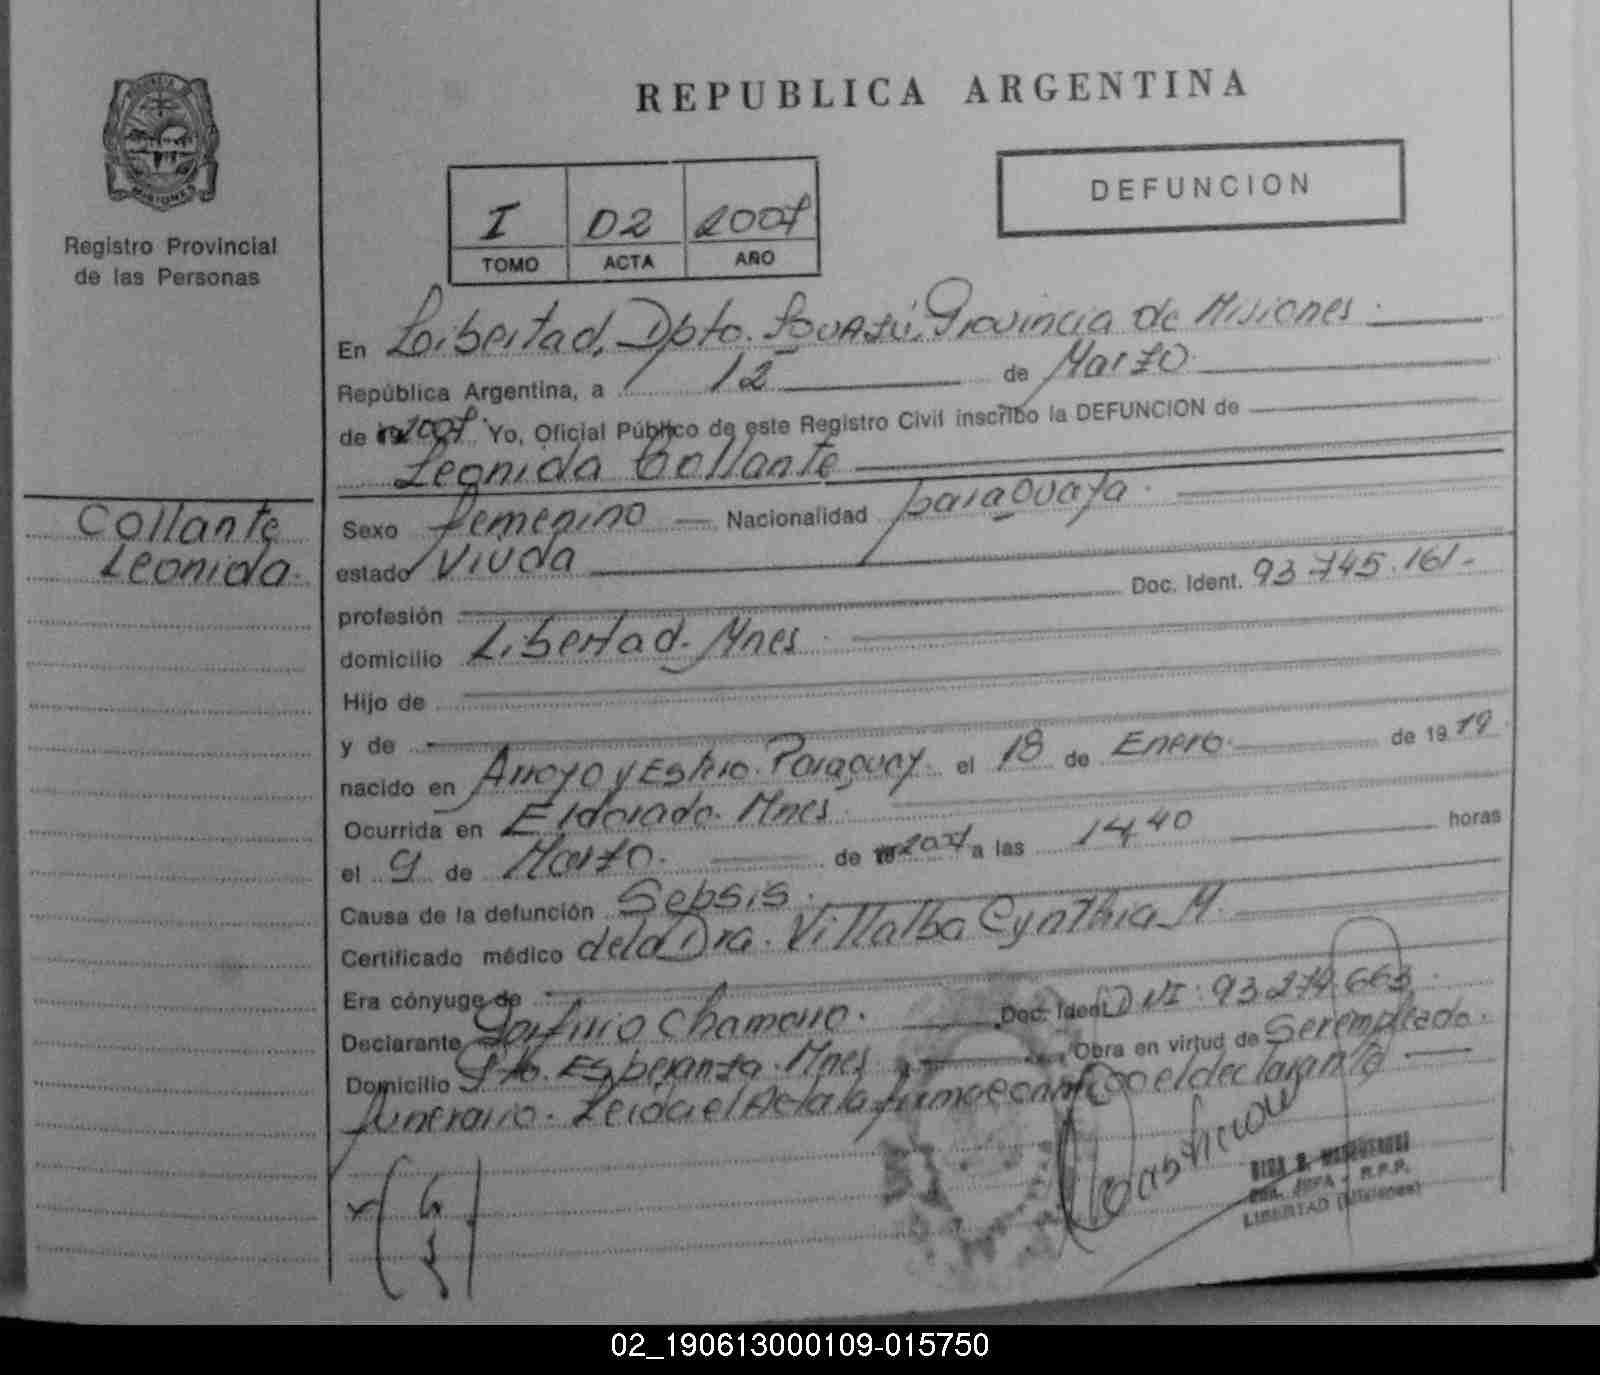 REPUBLICA ARGENTINA
DEFUNCION
MISIONES
Registro Provincial
de las Personas
I 02 2007
TOMO ACTA AÑO
En Libertad, Dpto. Iguazú, Provincia de Misiones.
República Argentina, a 12 de Marzo
de 2007 Yo, Oficial Público de este Registro Civil inscribo la DEFUNCION de
Leonida Collante
Collante
Leonida.
Sexo femenino Nacionalidad paraguaya.
estado Viuda
profesión Doc. Ident. 93.745.161.-
domicilio Libertad. Mnes.
Hijo de
y de
nacido en Arroyo y Paraguay el 18 de Enero. de 1919
Ocurrida en Eldorado. Mnes.
el 9 de Marzo. de 2007 a las 14,40 horas
Causa de la defunción Sepsis.
Certificado médico de la Dra. Villalba Cynthia M.
Era cónyuge de
Declarante Chamorro. Doc. Ident. DNI: 93.274.663.
Domicilio Pto. Esperanza. Mnes Obra en virtud de Ser empleado.
funerario. Leida el Acta la firma conmigo el declarante
LIBERTAD (Misiones)
02_190613000109-015750